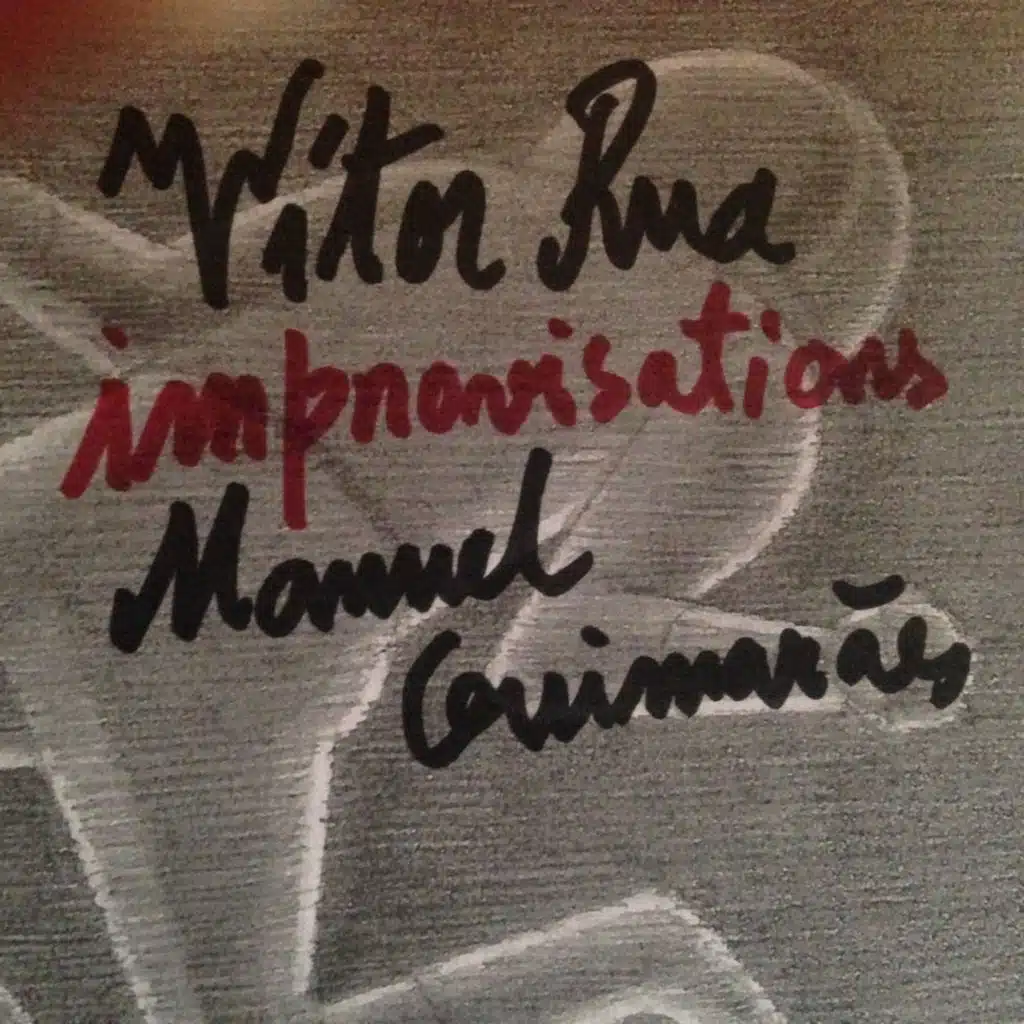 Vítor Rua
improvisations
Manuel
Guimarães